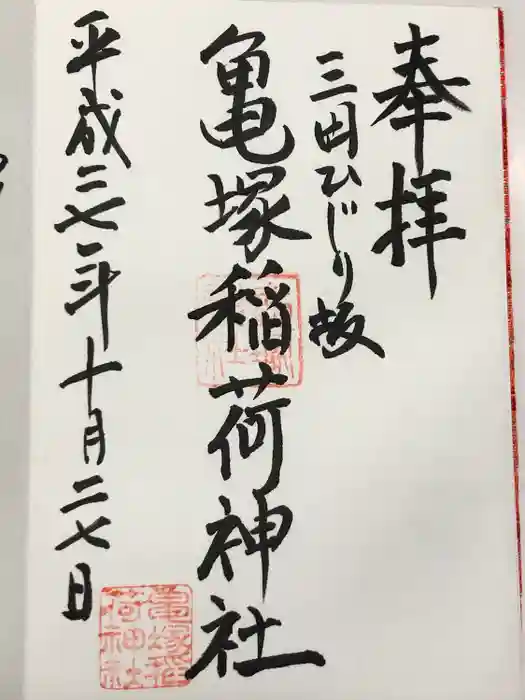 奉拝
三田ひじり坂
亀塚稲荷神社
平成二七年十月二七日
亀塚稲
荷神社